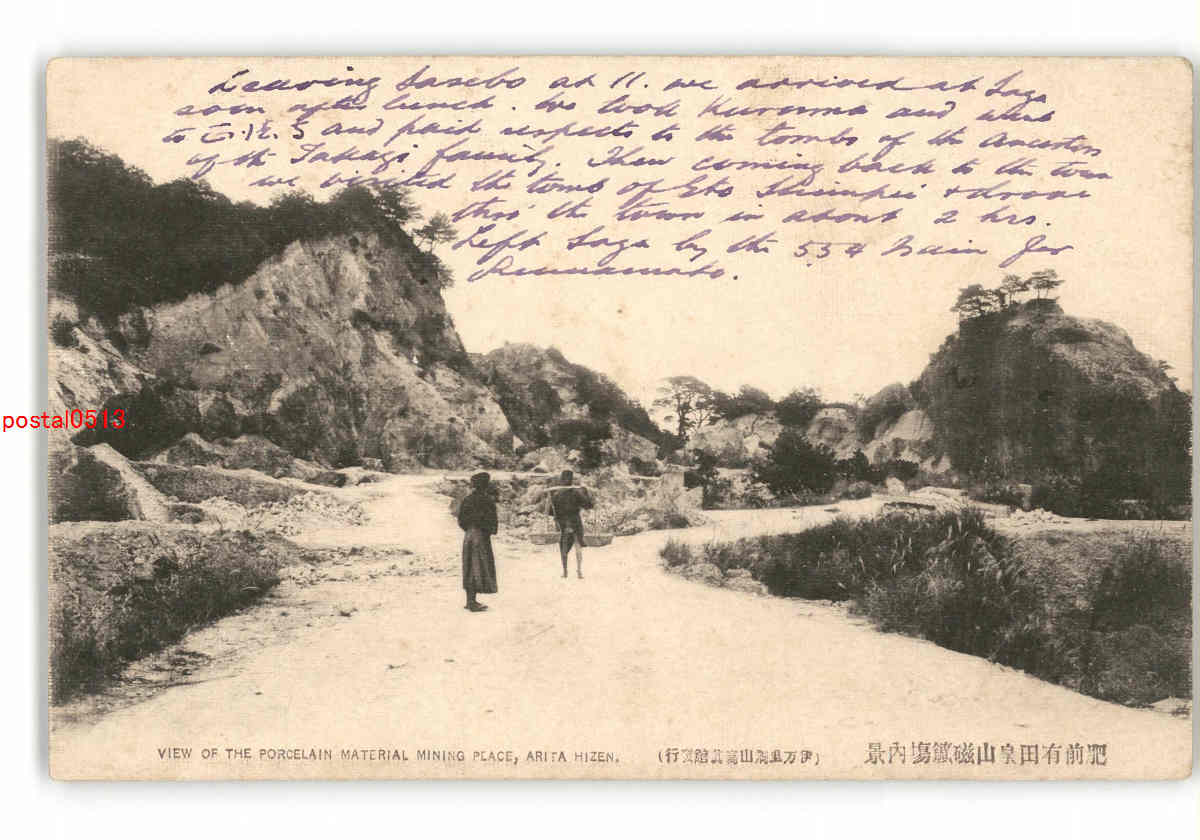 Leaving Sasebo at 11. we arrived at Saga
soon after lunch. We took Kuruma and went
to 5 and paid respects to the tombs of the Ancestors
of the Takagi family. Then coming back to the town
we visited the tomb of Eto Shimpei + drove
thro' the town in about 2 hrs.
Left Saga by the 5 54 train for
Kumamoto.
postal0513
VIEW OF THE PORCELAIN MATERIAL MINING PLACE, ARITA HIZEN.
肥前有田皇山磁鑛場内景